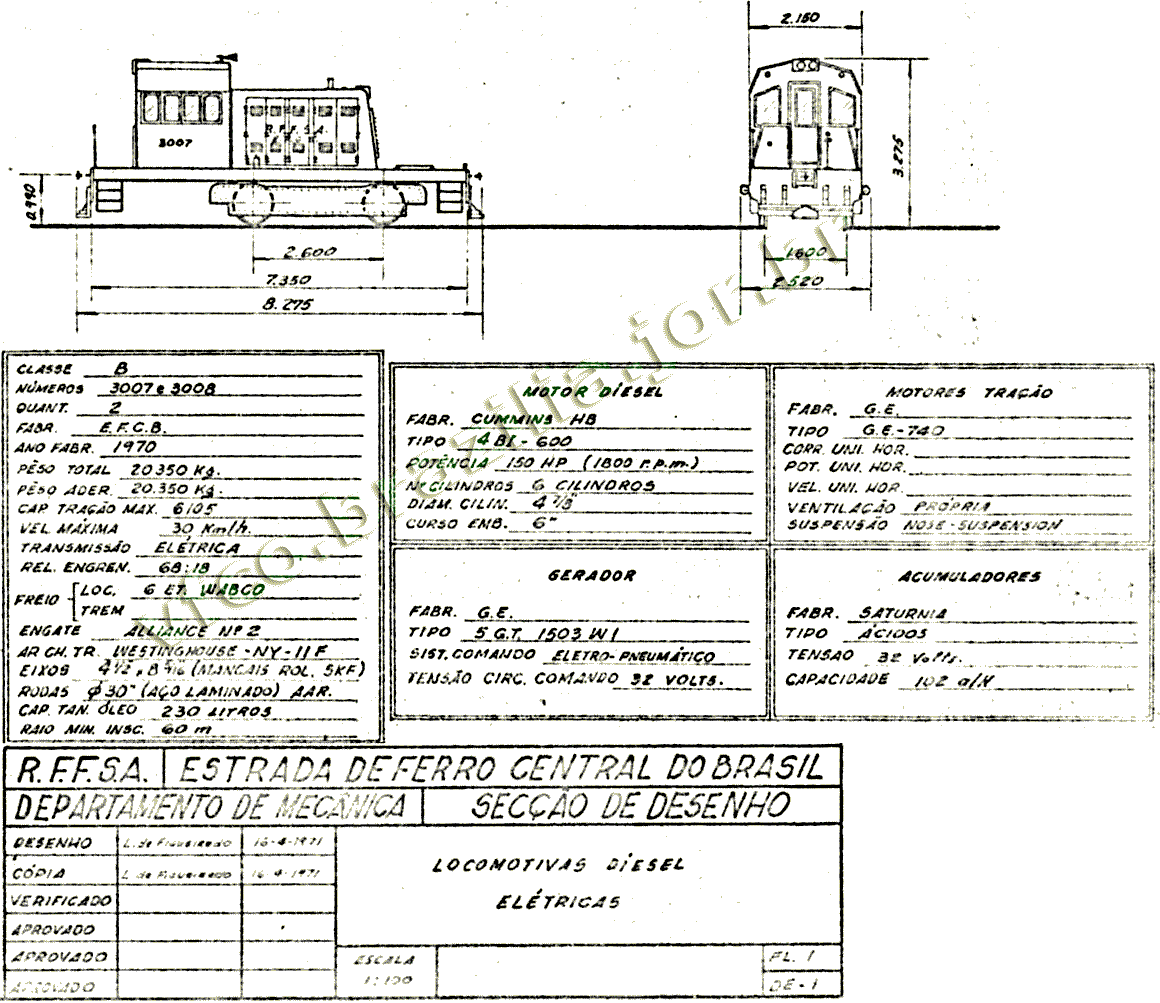 2.150
3007
R.F.F.S.A.
0.990
3.275
2.600
7.350
8.275
1.600
2.520
vfco.brazilia.jor.br
CLASSE B
NÚMEROS 3007 e 3008
QUANT. 2
FABR. E.F.C.B.
ANO FABR. 1970
PÊSO TOTAL 20350 Kg.
PÊSO ADER. 20.350 Kg
CAP. TRAÇÃO MAX. 6105
VEL. MÁXIMA 30 Km/h.
TRANSMISSÃO ELÉTRICA
REL. ENGREN. 68:18
FREIO LOC. 6 ET. WABCO
TREM
ENGATE ALLIANCE Nº 2
AR CH. TR. WESTINGHOUSE-NY-11F
EIXOS 4 1/2", 8 5/16 (MANCAIS ROL. SKF)
RODAS Ø 30" (AÇO LAMINADO) AAR.
CAP. TAN. ÓLEO 230 LITROS
RAIO MIN. INSC. 60 m
MOTOR DÍESEL
FABR. CUMMINS HB
TIPO 4 BI - 600
POTÊNCIA 150 HP (1800 r.p.m.)
Nº CILINDROS 6 CILINDROS
DIAM. CILIN. 4 7/8"
CURSO EMB. 6"
MOTORES TRAÇÃO
FABR. G.E.
TIPO G.E.-740
CORR. UNI. HOR.
POT. UNI. HOR.
VEL. UNI. HOR.
VENTILAÇÃO PRÓPRIA
SUSPENSÃO NOSE-SUSPENSION
GERADOR
FABR. G.E.
TIPO 5 G.T. 1503 W1
SIST. COMANDO ELETRO-PNEUMÁTICO
TENSÃO CIRC. COMANDO 32 VOLTS.
ACUMULADORES
FABR. SATURNIA
TIPO ÁCIDOS
TENSAO 32 Volts.
CAPACIDADE 102 a/H
R.F.F.S.A. ESTRADA DE FERRO CENTRAL DO BRASIL
DEPARTAMENTO DE MECÂNICA SECÇÃO DE DESENHO
DESENHO L. de Figueiredo 16-4-1971
CÓPIA L. de Figueiredo 16-4-1971
VERIFICADO
APROVADO
APROVADO
APROVADO
LOCOMOTIVAS DÍESEL
ELÉTRICAS
ESCALA
1:100
FL. 1
DE-1